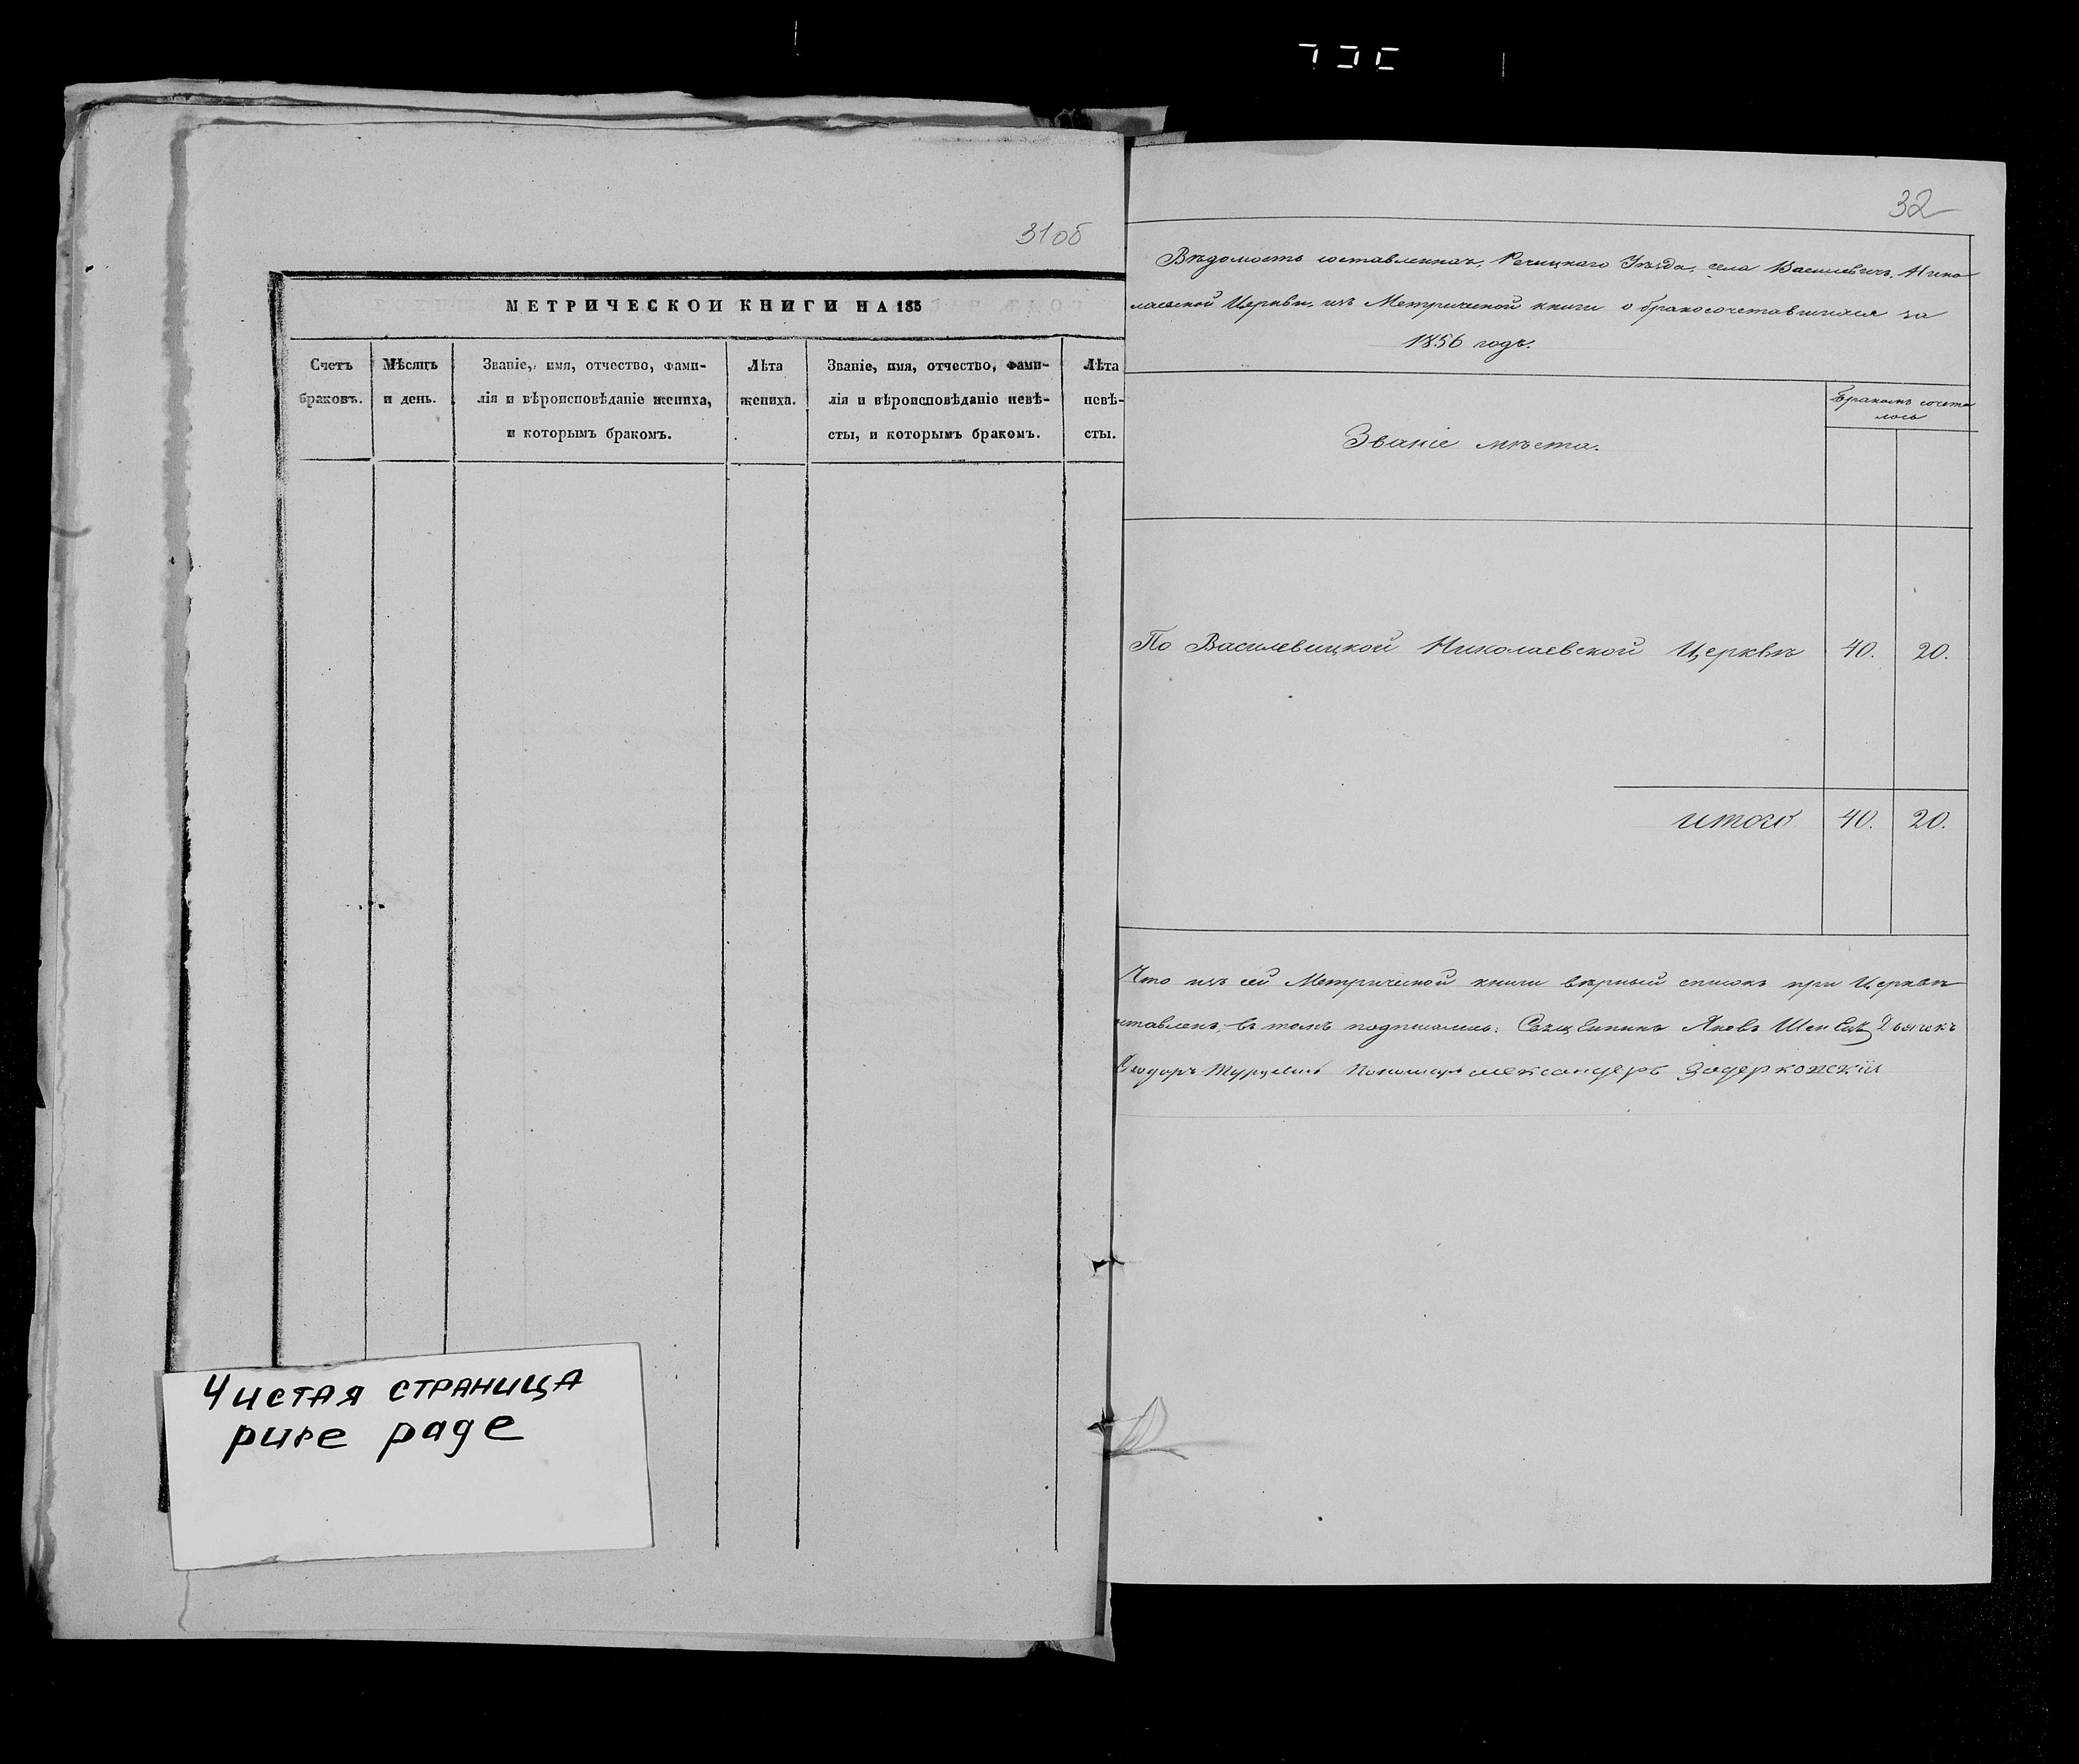 31об
МЕТРИЧЕСКОИ КНИГИ НА 185
Счетъ браковъ.
Мѣсяцъ и день.
Званіе, имя, отчество, фами-
лія и вѣроисповѣданіе жениха,
и которымъ бракомъ.
Лѣта жениха.
Званіе, имя, отчество, фами-
лія и вѣроисповѣданіе невѣ-
сты, и которымъ бракомъ.
Лѣта невѣ-
сты.
Чистая страница
pure page
32
Вѣдомость составленная, Речицкаго Уѣзда, села Василевичъ, Нико
лаевской Церкви, изъ Метрической книги о бракосочетавшихся за
1856 годъ.
Званіе мѣста.
Бракомъ сочета
лось
По Василевицкой Николаевской Церквѣ 40. 20.
итого 40. 20.
Что изъ сей Метрической книги вѣрный списокъ при Церквѣ
ставленъ, въ томъ подписались: Священникъ Яковъ Дьячекъ
Пономарь Задеркожскій